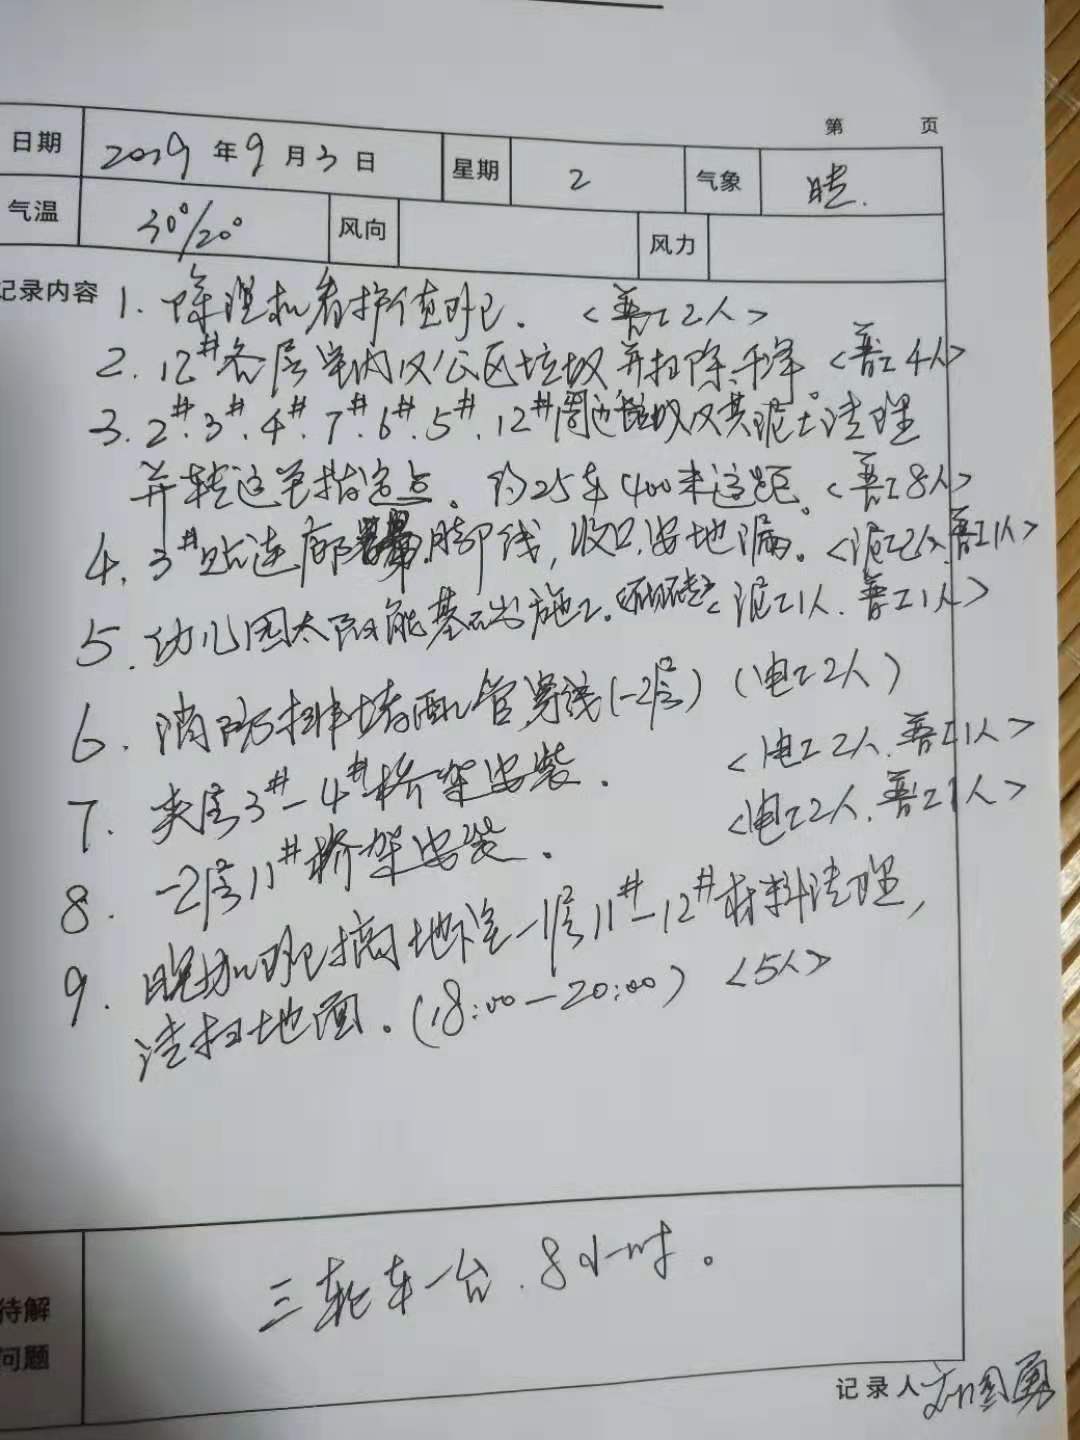 第 页
日期 2019年9月3日 星期 2 气象 晴.
气温 30°/20° 风向 风力
记录内容 1. 看护值班. <普工2人>
2. 12#各层室内及公区垃圾并扫除干净 <普工4人>
3. 2#.3#.4#.7#.6#.5#.12#周边垃圾及其泥土清理
并转运至指定点。约25车400米运距。<普工8人>
4. 3#连廊脚线,收口,安地漏。<泥工2人,普工1人>
5. 幼儿园太阳能基础施工。<泥工1人.普工1人>
6. 消防排烟配管穿线(-2层) (电工2人)
7. 夹层3#-4#桥架安装. <电工2人.普工1人>
8. -2层11#桥架安装. <电工2人.普工1人>
9. 晚加班搞地下室-1层11#-12#材料清理,
清扫地面.(18:00-20:00) <5人>
待解
问题
三轮车一台.8小时。
记录人